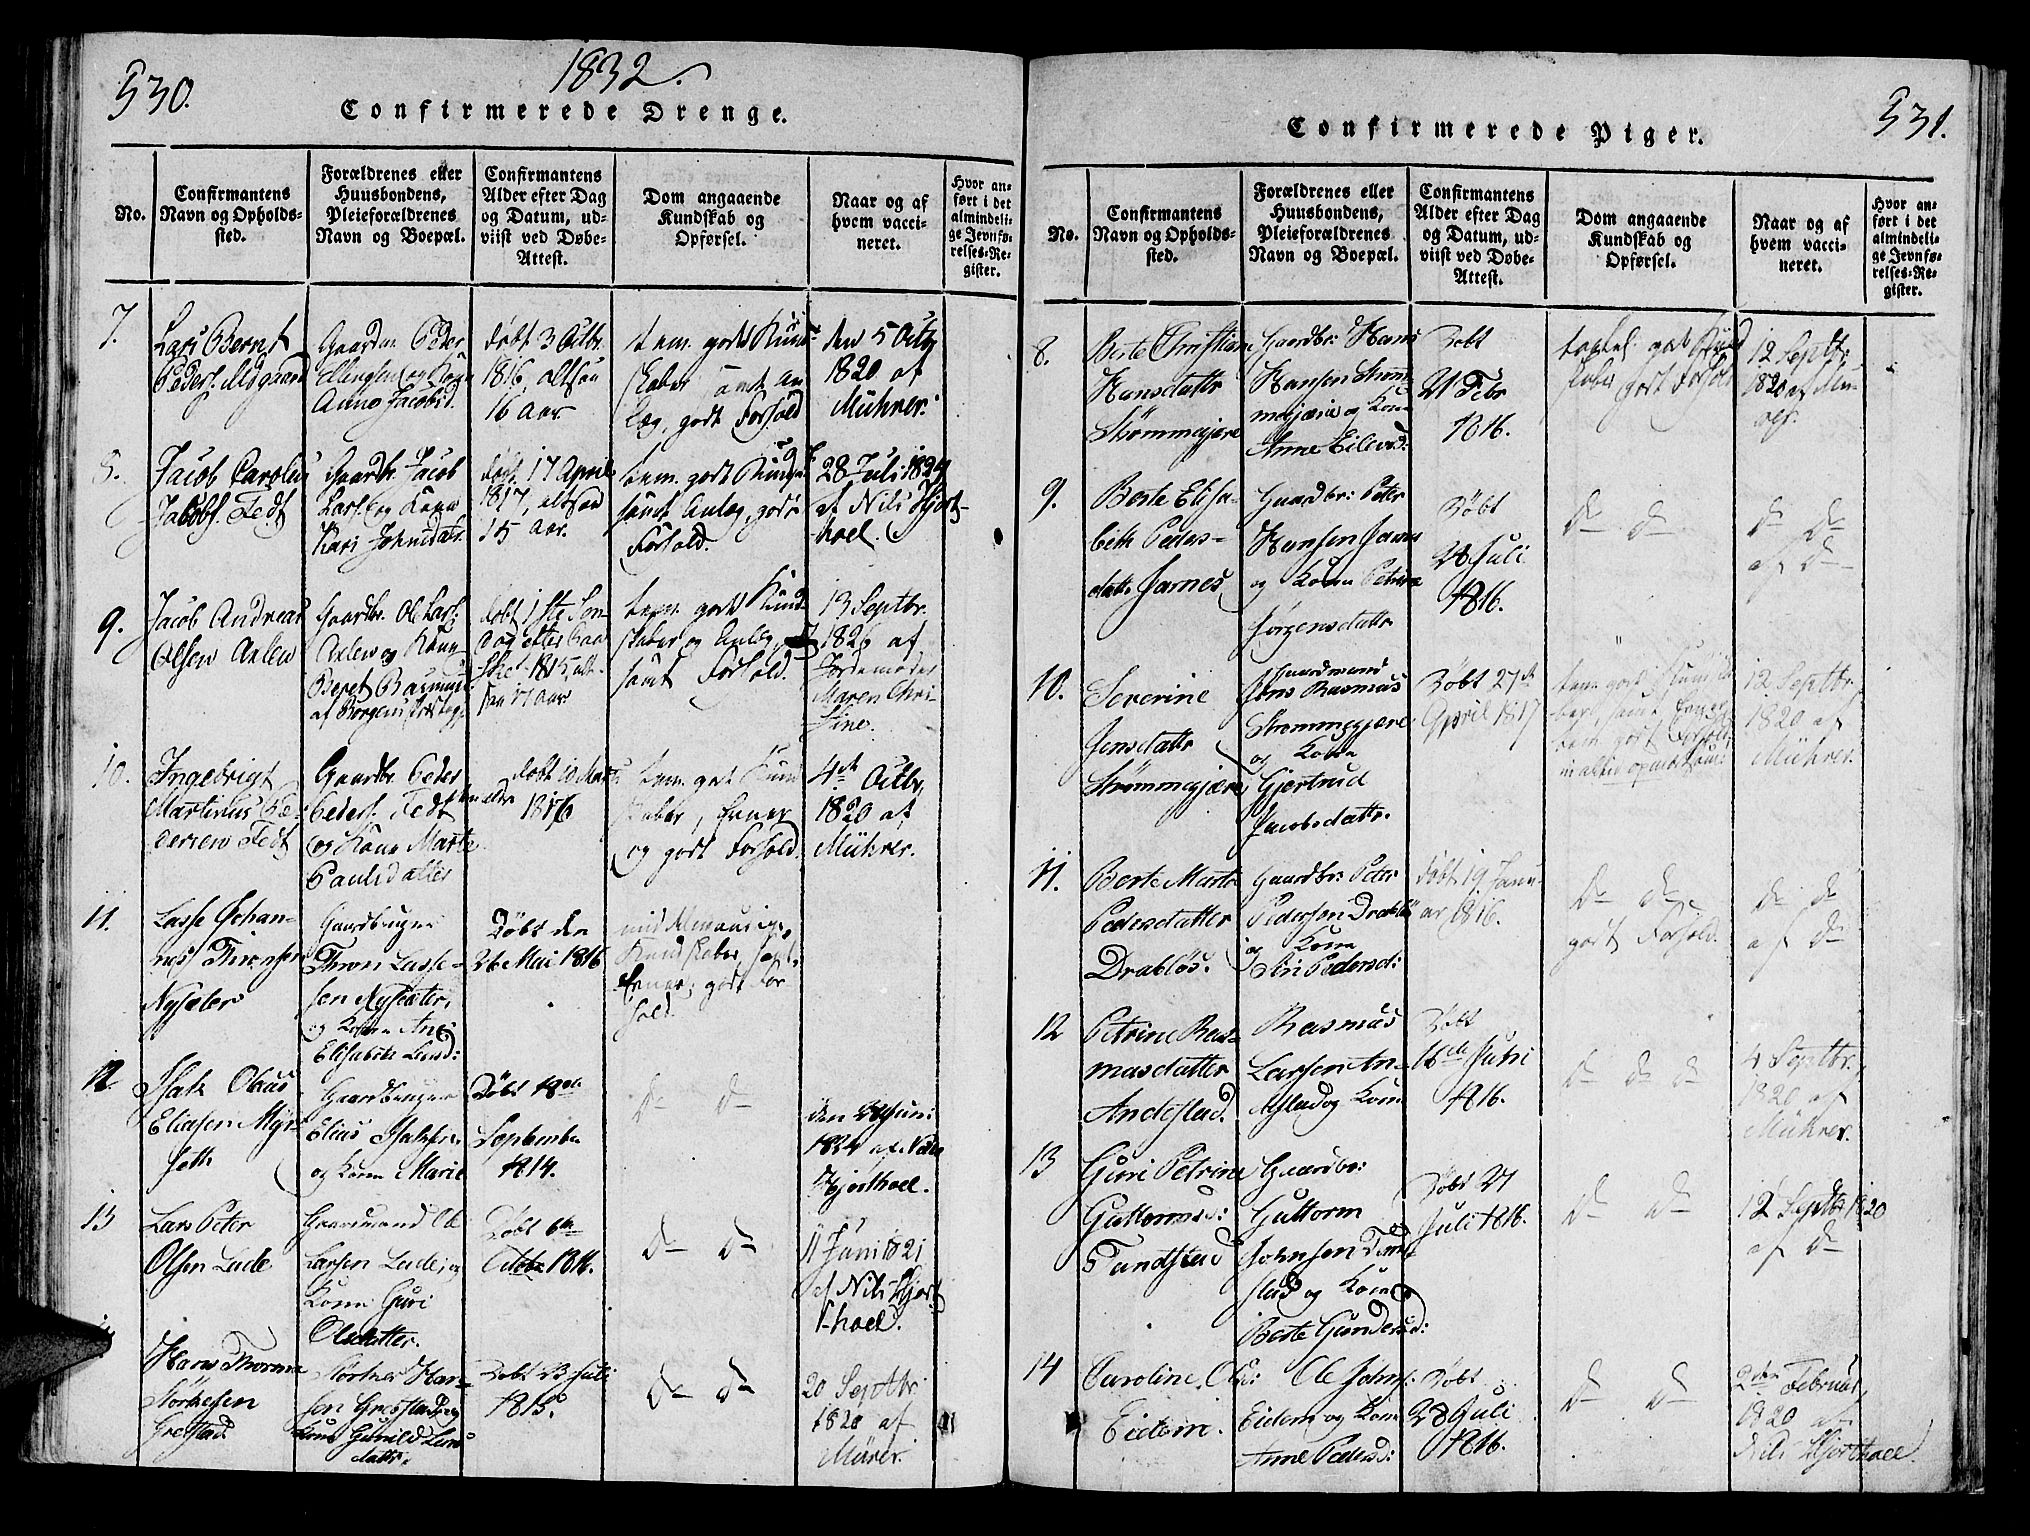 530.
1832.
Confirmerede Drenge.
No.
Confirmantens
Navn og Opholds-
sted.
Forældrenes eller
Huusbondens,
Pleieforældrenes
Navn og Boepæl.
Confirmantens
Alder efter Dag
og Datum, ud-
viist ved Døbe-
Attest.
Dom angaaende
Kundskab og
Opførsel.
Naar og af
hvem vacci-
neret.
Hvor an-
ført i det
almindeli-
ge Jevnfø-
relses-Re-
gister.
7.
Lars Bernt
Peders.
Gaardm Peder
Ellingsen og Kone
Anne Jacobsd.
døbt 3 Octbr.
1816, altsaa
16 Aar.
tem. gode Kund-
skaber samt An
læg, godt Forhold
den 5 Octbr
1820 af
Mührer.
8.
Jacob Carolus
Jacobs. Fedt
Gaardbr. Jacob
Lars. og Kone
Kari Johnsdatr.
døbt 17 April
1817, altsaa
15 Aar.
tem. godt Kundsk.
samt Anlæg, godt
Forhold.
28 Juli 1824
af Nils Hjort-
hoel.
9.
Jacob Andreas
Olsen Axlew
Gaardbr. Ole Lars.
Axlew og Kone
Beret Rasmusd
af Borgens
døbt 1ste Søn
dag efter Paa
ske 1815, alt-
saa 17 Aar
tem. gode Kund
skaber og Anlæg,
samt Forhold.
13 Septbr.
1820 af
Jordemoder
Maren Chri-
stine.
10.
Ingebrigt
Martinus Pe-
dersen Fedt
Gaardbr Peder
Peders. Fedt
og Kone Marte
Paulsdatter
døbt 10 Marts
1816
tem. god Kund
skaber, Evner
og godt Forhold
4de Octbr.
1820 af
Mührer.
11.
Lasse Johan-
nes Thronsen
Nysæter
Gaardbruger
Thron Lasse-
sen Nysæter,
og Kone Ane
Elisabete Larsd:
Døbt den
26 Mai 1816
Kundskaber,
Evner; godt For
hold.
12
Isak Olaus
Eliasen Myr-
seth
Gaardbruger
Elias Isaksen
og Kone Marie
Døbt 18de
September
1814.
D— D—
1824 af Niels
Hjorthoel.
13
Lars Peter
Olsen Lade
Gaardmand Ole
Larsen Lade, og
Kone Guri
Olsdatter.
Døbt 6te
Octobr 1816.
D— D—
11 Juni 1821
af Nils Hjort
hoel.
Hans Thorma
Størkesen
Grestad
Størker Han-
sen Grestad og
Kone Gunild Lars
datter.
Døbt 23 Juli
1815.
D— D—
20 Septbr.
1820 af
Mürer.
531.
Confirmerede Piger.
No.
Confirmantens
Navn og Opholds-
sted.
Forældrenes eller
Huusbondens,
Pleieforældrenes
Navn og Boepæl.
Confirmantens
Alder efter Dag
og Datum, ud-
viist ved Døbe-
Attest.
Dom angaaende
Kundskab og
Opførsel.
Naar og af
hvem vacci-
neret.
Hvor an-
ført i det
almindeli-
ge Jevnfø-
relses-Re-
gister.
8.
Berte Christiane
Hansdattr
Strømmegjære
Gaardbr: Hans
Hansen Strøm-
megjære og Kone
Anne Eilevsd:
Døbt
21 Febr
1816.
godt Forhold
12 Septbr:
1820 af
9.
Berte Elisa-
beth Peders-
dattr Jarnes
Gaardbr: Peter
Hansen Jarnes
og Kone Petrine
Jørgensdattr
Døbt
28 Juli
1816.
D— D—
D— D—
af D—
10.
Severine
Jensdattr
Strømmegjære
Gaardmand
Jens Rasmus
Strømmegjære
og Kone
Gjertrud
Jacobsdattr.
Døbt 27de
April 1817
12 Septbr.
1820 af
Mührer.
11.
Berte Marte
Pedersdatter
Drabløs.
Gaardbr: Peter
Pedersen Drabløs
og Kone
Ani Pedersd:
døbt 19 Janu-
ar 1816.
D— D—
godt Forhold.
D— D
af D—
12
Petrine Ras-
musdatter
Andestad.
Rasmus
Larsen An-
destad og Kone
Døbt
16de Juni
1816.
D— D— D—
4 Septbr.
1820 af
Mührer.
13
Guri Petrine
Guttormsd:
Tandstad
Gaardbr:
Guttorm
Johnsen Tand
stad og Kone
Berte Gundersd:
Døbt 21
Juli 1816.
D— D—
12 Septbr 1820
af D—
14
Caroline Olsd:
Eidem.
Ole Johns.
Eidem og Kone
Anne Pedersd:
Døbt
28 Juli
1816.
D— D—
2den Februar,
1820 af
Nils Hjorthoel.